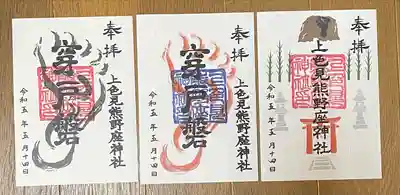 奉拝
上色見熊野座神社
穿戸磐
令和五年五月十四日
奉拝
上色見熊野座神社
穿戸磐
令和五年五月十四日
奉拝
上色見熊野座神社
令和五年五月十四日